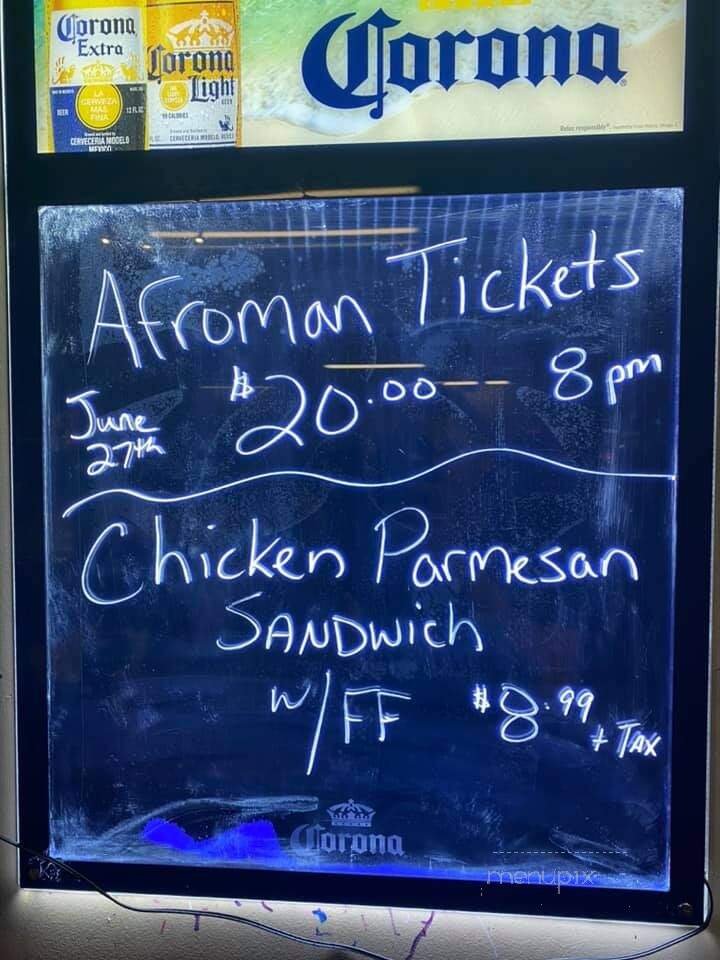 Corona
Extra
LA
CERVEZA
MAS
FINA
BEER
12 FL. OZ.
CERVECERIA MODELO
MEXICO
Corona
Light
BEER
99 CALORIES
CERVECERIA MODELO, MEXICO
Corona
Relax responsibly®.
Afroman Tickets
June 27th
$20.00
8 pm
Chicken Parmesan
SANDwich
w/FF $8.99 + TAX
Corona
menupix